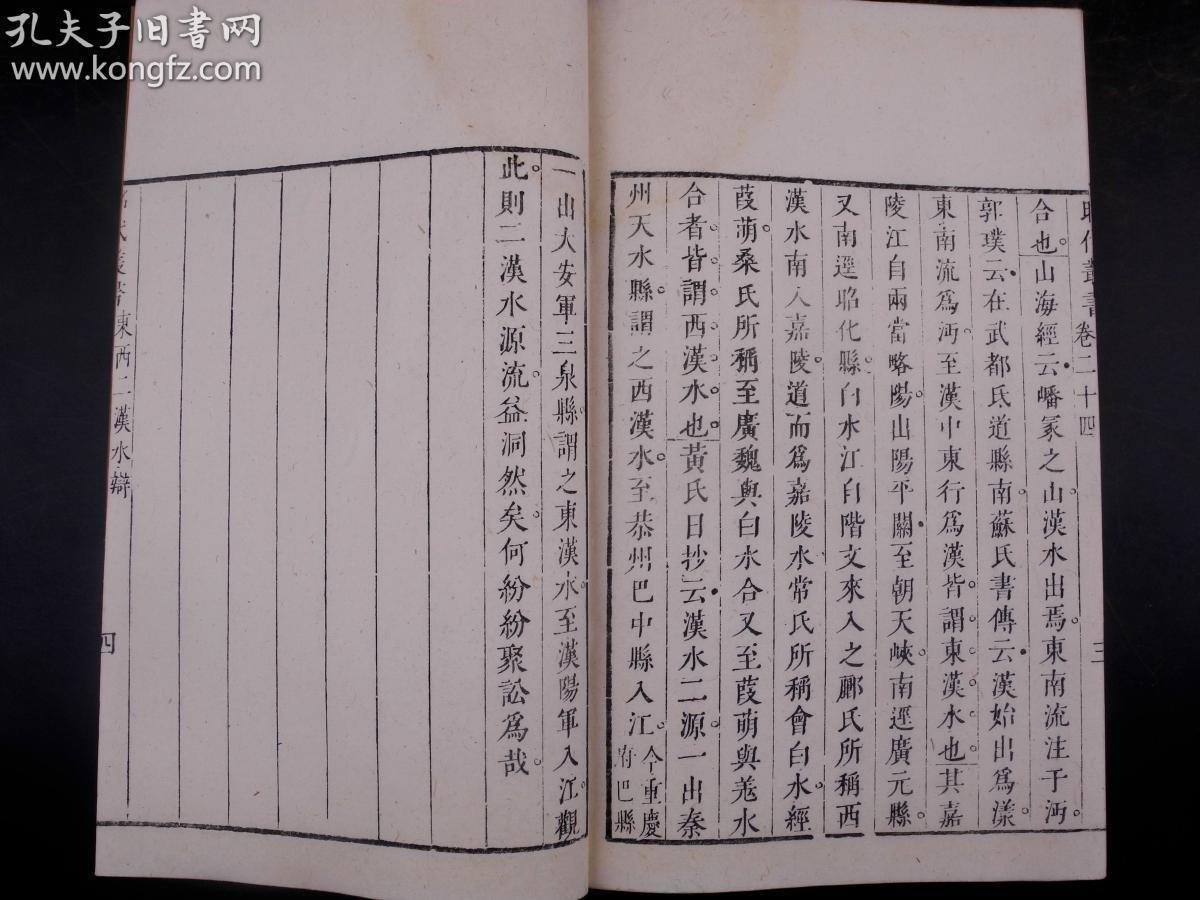 孔夫子旧书网
www.kongfz.com
昭代叢書卷二十四
三
合也山海經云嶓冢之山漢水出焉東南流注于沔
郭璞云在武都氐道縣南蘇氏書傳云漢始出爲漾
東南流爲沔至漢中東行爲漢皆謂東漢水也其嘉
陵江自兩當略陽山陽平關至朝天峽南逕廣元縣
又南逕昭化縣白水江自階文來入之酈氏所稱西
漢水南入嘉陵道而爲嘉陵水常氏所稱會白水經
葭萌桑氏所稱至廣魏與白水合又至葭萌與羌水
合者皆謂西漢水也黃氏日抄云漢水二源一出秦
州天水縣謂之西漢水至恭州巴中縣入江今重慶府巴縣
一出大安軍三泉縣謂之東漢水至漢陽軍入江觀
此則二漢水源流益洞然矣何紛紛聚訟爲哉
東西二漢水辯
四